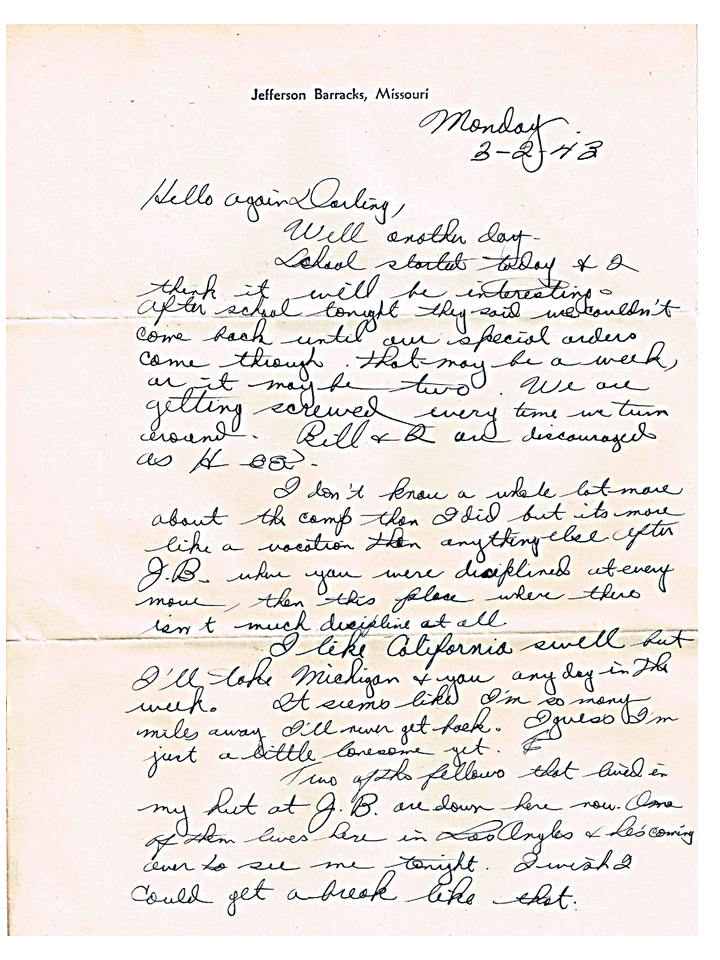 Jefferson Barracks, Missouri
Monday.
3-2-43
Hello again Darling,
Well another day-
School started today & I
think it will be interesting.
After school tonight they said we couldn't
come back until our special orders
come through. that may be a week,
or it may be two. We are
getting screwed every time we turn
around. Bill & I are discouraged
as H
I don't know a whole lot more
about the camp than I did but its more
like a vacation than anything else after
J.B. where you were disciplined at every
move, then this place where there
isn't much discipline at all
I like California swell but
I'll take Michigan & you any day in the
week. It seems like I'm so many
miles away I'll never get back. I guess I'm
just a little lonesome yet.
Two of the fellows that lived in
my hut at J.B. are down here now. One
of them lives here in Los Angles & he's coming
over to see me tonight. I wish I
could get a break like that.